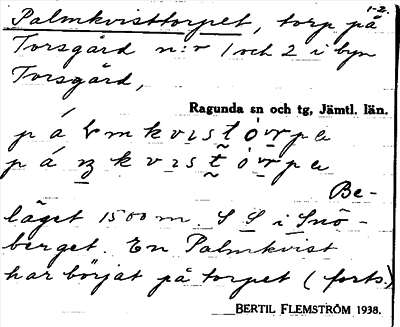 1-2.
Palmkvisttorpet, torp på
Torsgård n:r 1 och 2 i byn
Torsgård,
Ragunda sn och tg, Jämtl. län.
Be-
läget 1500 m. S S i Snö-
berget. En Palmkvist
har börjat på torpet (forts.)
BERTIL FLEMSTRÖM 1938.